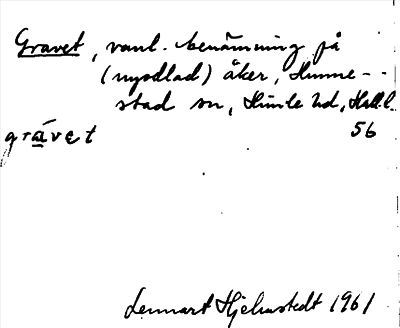 Gravet, vanl. benämning på
(nyodlad) åker, Hunne-
stad sn, Himle hd, Hall.
grávet 56
Lennart Hjelmstedt 1961